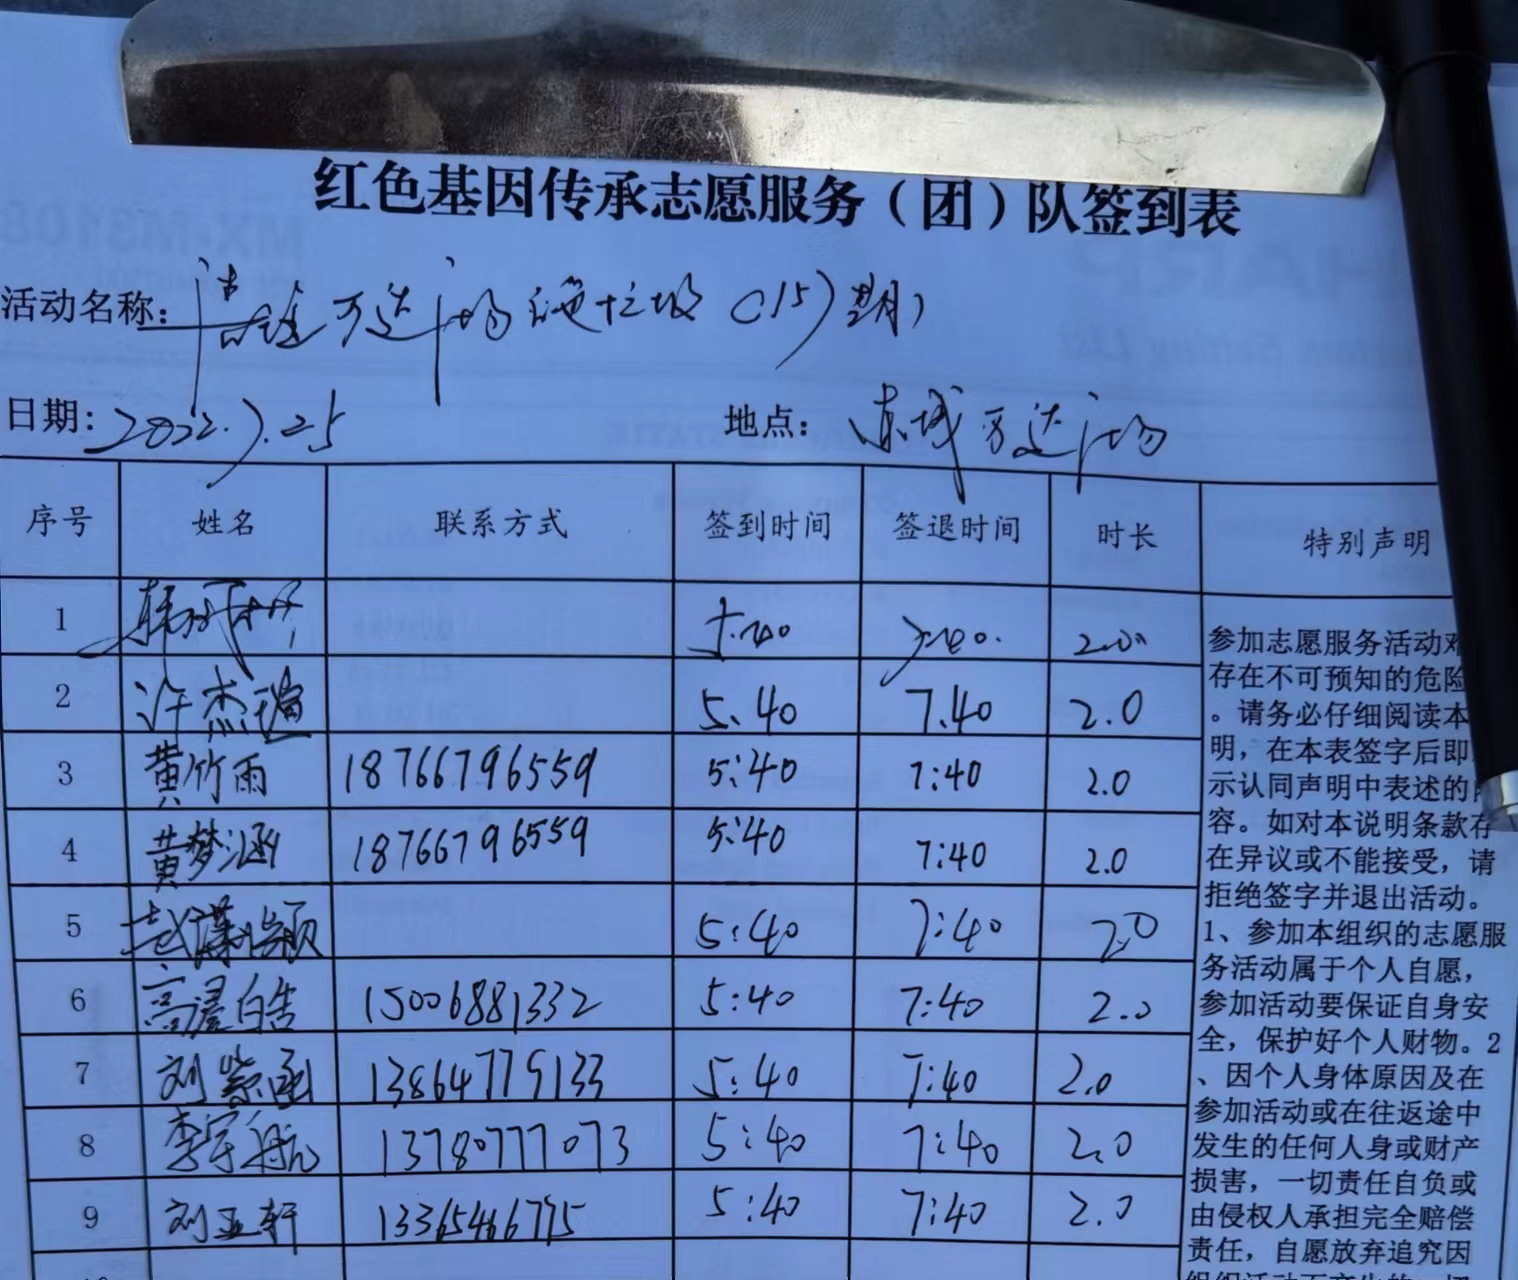 红色基因传承志愿服务（团）队签到表
活动名称： 万达广场 垃圾（15）期
日期：2022.7.25 地点：东城万达广场
序号 姓名 联系方式 签到时间 签退时间 时长 特别声明
1 5:40 7:40 2.0
2 许杰瑄 5.40 7.40 2.0
3 黄竹雨 18766796559 5:40 7:40 2.0
4 黄梦涵 18766796559 5:40 7:40 2.0
5 5:40 7:40 2.0
6 15006881332 5:40 7:40 2.0
7 刘紫函 13864779133 5:40 7:40 2.0
8 李宇航 13780777073 5:40 7:40 2.0
9 刘亚轩 13365466775 5:40 7:40 2.0
参加志愿服务活动难
存在不可预知的危险
。请务必仔细阅读本
明，在本表签字后即
示认同声明中表述的
容。如对本说明条款存
在异议或不能接受，请
拒绝签字并退出活动。
1、参加本组织的志愿服
务活动属于个人自愿，
参加活动要保证自身安
全，保护好个人财物。2
、因个人身体原因及在
参加活动或在往返途中
发生的任何人身或财产
损害，一切责任自负或
由侵权人承担完全赔偿
责任，自愿放弃追究因